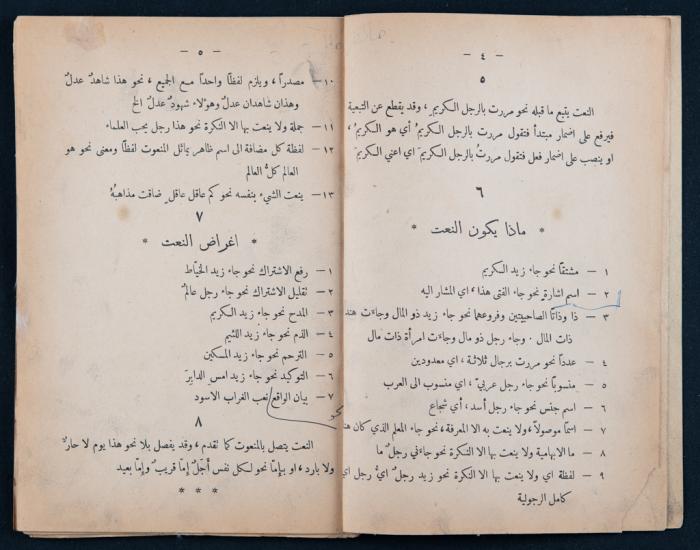 — ٤ —
٥
النعت يتبع ما قبله نحو مررت بالرجل الكريمِ ، وقد يقطع عن التبعية
فيرفع على اضمار مبتدأ فتقول مررت بالرجل الكريمُ أي هو الكريمُ ،
او ينصب على اضمار فعل فتقول مررتُ بالرجل الكريمَ اي اعني الكريمَ
٦
* ماذا يكون النعت *
١ — مشتقاً نحو جاء زيد الكريم
٢ — اسم اشارة نحو جاء الفتى هذا ، اي المشار اليه
٣ — ذا وذاتا الصاحبيتين وفروعهما نحو جاء زيد ذو المال وجاءت هند
ذات المال . وجاء رجل ذو مال وجاءت امرأة ذات مال
٤ — عدداً نحو مررت برجال ثلاثة ، اي معدودين
٥ — منسوباً نحو جاء رجل عربيّ ، اي منسوب الى العرب
٦ — اسم جنس نحو جاء رجل أسد ، أي شجاع
٧ — اسماً موصولاً ، ولا ينعت به الا المعرفة ، نحو جاء المعلم الذي كان هنا
٨ — ما الابهامية ولا ينعت بها الا النكرة نحو جاءني رجلٌ ما
٩ — لفظة اي ولا ينعت بها الا النكرة نحو زيد رجلٌ ايُّ رجل اي
كامل الرجولية
— ٥ —
١٠ — مصدراً ، ويلزم لفظاً واحداً مع الجميع ، نحو هذا شاهدٌ عدلٌ
وهذان شاهدان عدلٌ وهؤلاء شهودٌ عدلٌ الخ
١١ — جملة ولا ينعت بها الا النكرة نحو هذا رجل يحب العلماء
١٢ — لفظة كل مضافة الى اسم ظاهر يماثل المنعوت لفظاً ومعنى نحو هو
العالم كلُّ العالم
١٣ — ينعت الشيء بنفسه نحو كم عاقل عاقلٍ ضاقت مذاهبُهُ
٧
* اغراض النعت *
١ — رفع الاشتراك نحو جاء زيد الخيّاط
٢ — تقليل الاشتراك نحو جاء رجل عالمٌ
٣ — المدح نحو جاء زيد الكريم
٤ — الذم نحو جاء زيد اللئيم
٥ — الترحم نحو جاء زيد المسكين
٦ — التوكيد نحو جاء زيد امسِ الدابرَ
٧ — بيان الواقع نحو نعب الغراب الاسود
٨
النعت يتصل بالمنعوت كما تقدم ، وقد يفصل بلا نحو هذا يوم لا حارٌّ
ولا بارد ، او بإمّا نحو لكل نفس أجَلٌ إمّا قريبٌ وإمّا بعيد
* * *